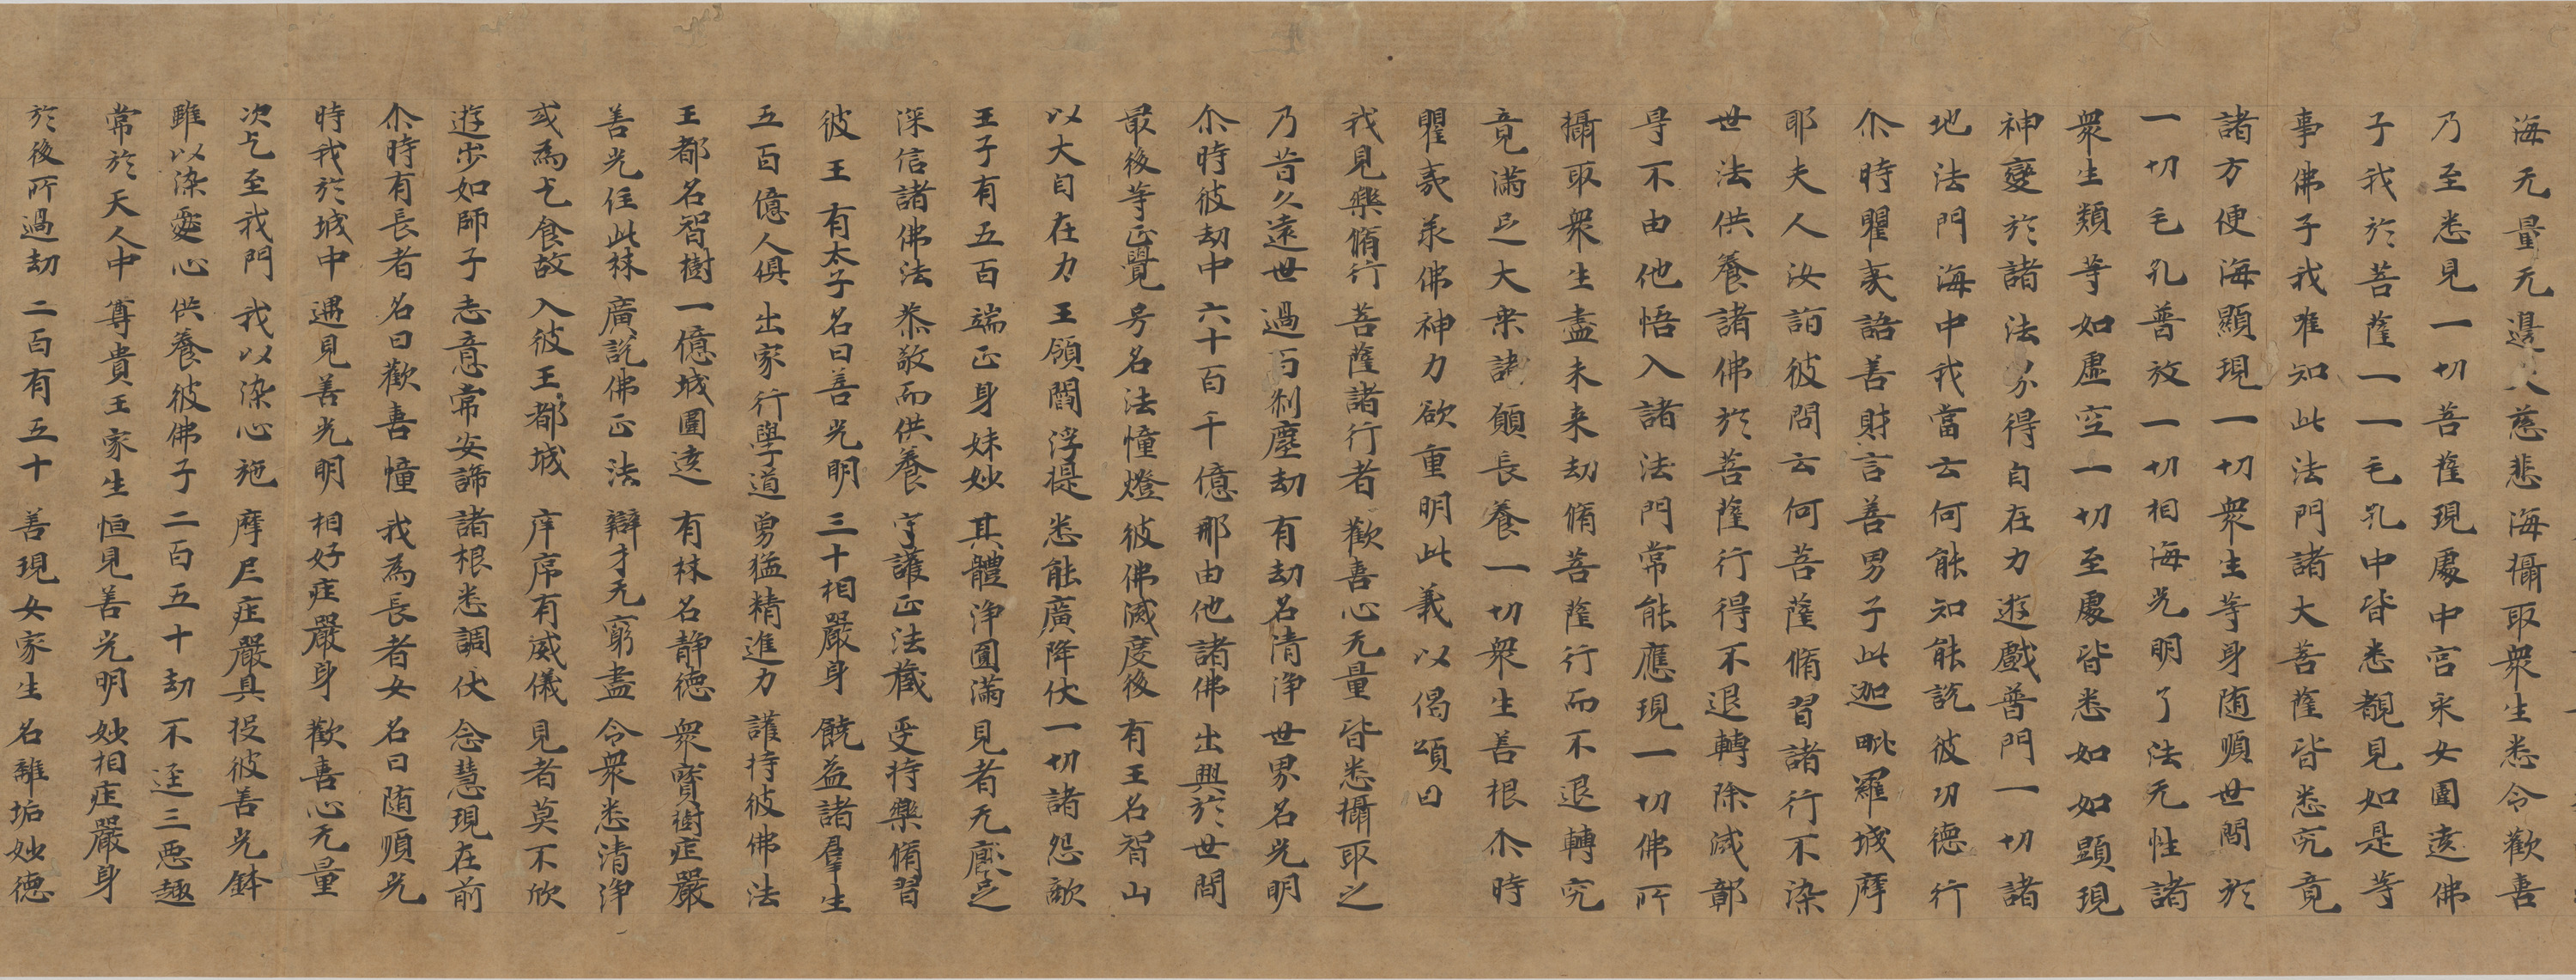 海无量无邊大慈悲海攝取衆生悉令歡喜
乃至悉見一切菩薩現處中宫采女圍遶佛
子我於菩薩一一毛孔中皆悉覩見如是等
事佛子我唯知此法門諸大菩薩皆悉究竟
諸方便海顯現一切衆生等身随順世間於
一切毛孔普放一切相海光明了法无性諸
衆生類等如虚空一切至處皆悉如如顯現
神變於諸法界得自在力遊戲普門一切諸
地法門海中我當云何能知能説彼功德行
尒時瞿夷語善財言善男子此迦毗羅城摩
耶夫人汝詣彼問云何菩薩脩習諸行不染
世法供養諸佛於菩薩行得不退轉除滅鄣
㝵不由他悟入諸法門常能應現一切佛所
攝取衆生盡未来劫脩菩薩行而不退轉究
竟滿足大乗諸願長養一切衆生善根尒時
瞿夷承佛神力欲重明此義以偈頌曰
我見樂脩行 菩薩諸行者 歡喜心无量 皆悉攝取之
乃昔久遠世 過百刹塵劫 有劫名清浄 世界名光明
尒時彼劫中 六十百千億 那由他諸佛 出興於世間
最後等正覺 号名法幢燈 彼佛滅度後 有王名智山
以大自在力 王領閻浮提 悉能廣降伏 一切諸怨敵
王子有五百 端正身姝妙 其體浄圓滿 見者无厭足
深信諸佛法 恭敬而供養 守護正法藏 受持樂脩習
彼王有太子 名曰善光明 三十相嚴身 饒益諸羣生
五百億人俱 出家行學道 勇猛精進力 護持彼佛法
王都名智樹 一億城圍遶 有林名静德 衆寶樹庄嚴
善光住此林 廣説佛正法 辯才无窮盡 令衆悉清浄
或為乞食故 入彼王都城 庠序有威儀 見者莫不欣
遊步如師子 志意常安諦 諸根悉調伏 念慧現在前
尒時有長者 名曰歡喜幢 我為長者女 名曰随順光
時我於城中 遇見善光明 相好庄嚴身 歡喜心无量
次乞至我門 我以染心施 摩尼庄嚴具 投彼善光鉢
雖以染愛心 供養彼佛子 二百五十劫 不遥三惡趣
常於天人中 尊貴王家生 恒見善光明 妙相庄嚴身
於後所過劫 二百有五十 善現女家生 名離垢妙德